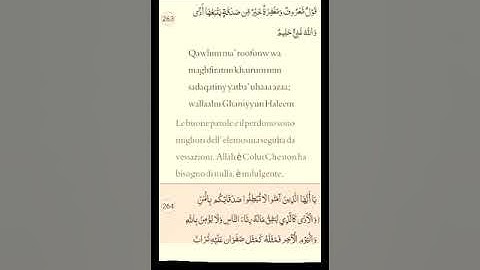 263
قَوْلٌ مَّعْرُوفٌ وَمَغْفِرَةٌ خَيْرٌ مِّن صَدَقَةٍ يَتْبَعُهَا أَذًى
وَاللَّهُ غَنِيٌّ حَلِيمٌ
Qawlum ma'roofunw wa
maghfiratun khairum min
sadaqatiny yatba'uhaaa azaa;
wallaahu Ghaniyyun Haleem
Le buone parole e il perdono sono
migliori dell' elemosina seguita da
vessazioni. Allàh è Colui Che non ha
bisogno di nulla, è indulgente.
264
يَا أَيُّهَا الَّذِينَ آمَنُوا لَا تُبْطِلُوا صَدَقَاتِكُم بِالْمَنِّ
وَالْأَذَىٰ كَالَّذِي يُنفِقُ مَالَهُ رِئَاءَ النَّاسِ وَلَا يُؤْمِنُ بِاللَّهِ
وَالْيَوْمِ الْآخِرِ فَمَثَلُهُ كَمَثَلِ صَفْوَانٍ عَلَيْهِ تُرَابٌ